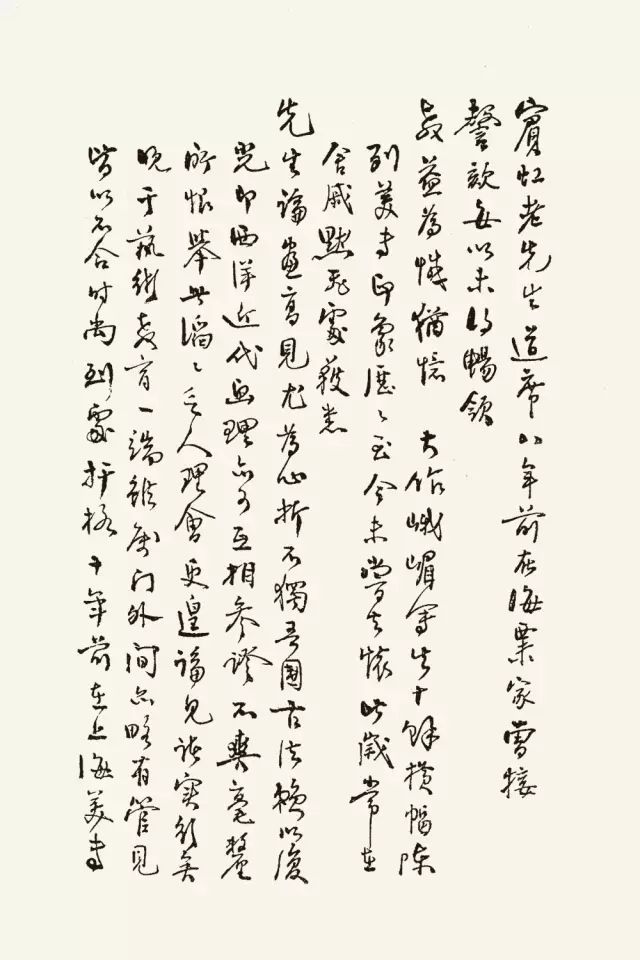 賓虹老先生道席八年前在海粟家曾接
謦欬每以未得暢領
教益為憾猶憶 大作峨嵋寫生十餘横幅陳
列美專印象歷〻至今未嘗去懷此歲常在
舍戚默飛處獲悉
先生論畫高見尤為心折不獨吾國古法賴以復
光即西洋近代畫理亦可互相參證不爽毫釐
所恨舉世滔〻乏人理會更遑論見諸實行矣
晚于藝術教育一端雖屬門外間亦略有管見
皆以不合時尚到處扞格十年前在上海美專